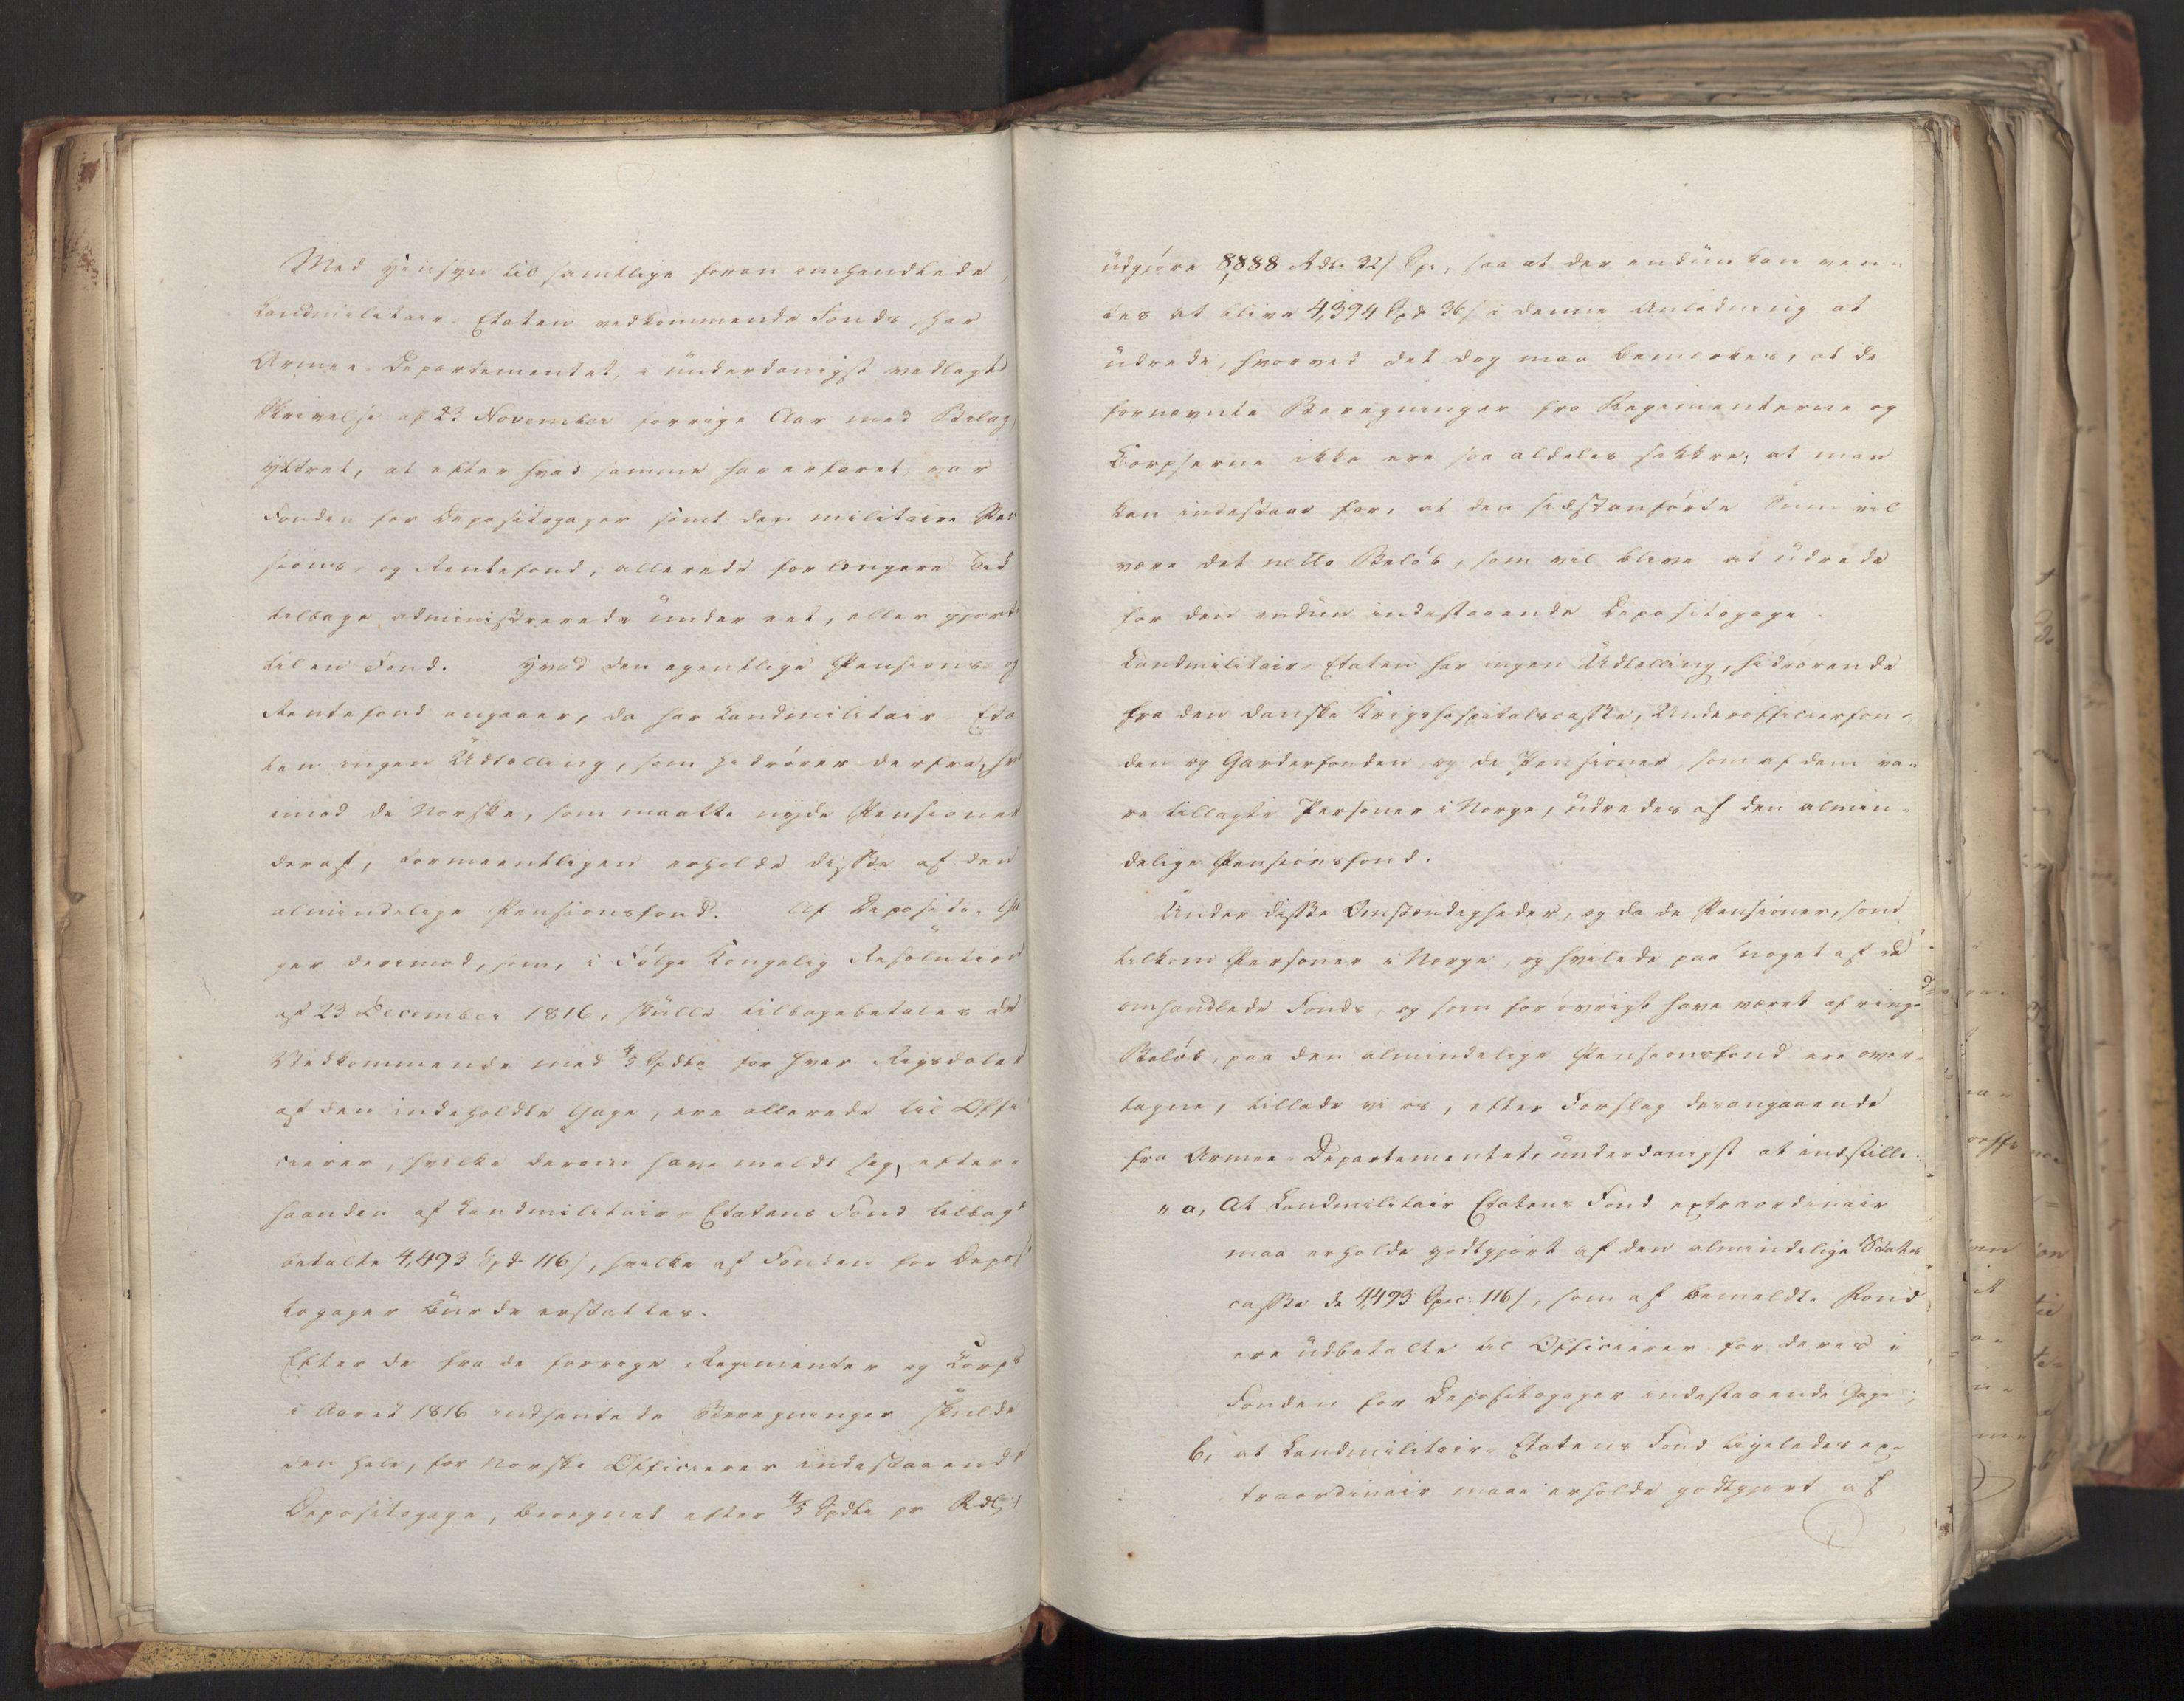 Med Hensyn til samtlige foran omhandlede,
Landmilitair-Etaten vedkommende Fonds, har
Armee-Departementet, i underdanigst vedlagte
Skrivelse af 23 November forrige Aar med Bilag,
yttret, at efter hvad samme har erfaret, var
Fonden for Depositogager samt den militaire Pen
sions- og Rentefond, allerede for længere Tid
tilbage administrerede under eet, eller gjort
til en Fond. Hvad den egentlige Pensions- og
Rentefond angaaer, da har Landmilitair-Eta
ten ingen Udtælling, som hidrører derfra, hv
imod de Norske, som maatte nyde Pensioner
deraf, formeentligen erholde disse af den
almindelige Pensionsfond. Af Deposito-Ga
ger derimod, som, i Følge Kongelig Resolution
af 23 December 1816, skulle tilbagebetales de
Vedkommende med 4/5 Spdlr for hver Rigsdaler
af den indeholdte Gage, ere allerede til Offi
cierer, hvilke derom have meldt sig, efter-
haanden af Landmilitair-Etatens Fond tilbage
betalte 4,493 Spd 116 s, hvilke af Fonden for Deposi
togager burde erstattes.
Efter de fra de forrige Regimenter og Corps
i Aaret 1816 indhentede Beregninger skulde
den hele, for norske Officierer indestaaende
Depositogage, beregnet efter 4/5 Spdlr pr Rdlr
udgjøre 8,888 Rdlr 32 s Spc, saa at der endnu kan ven-
tes at blive 4,394 Spd 36 s i denne Anledning at
udrede, hvorved det dog maa bemærkes, at de
fornævnte Beregninger fra Regimenterne og
Corpserne ikke ere saa aldeles sikkre, at man
kan indestaae for, at den sidstanførte Sum vil
være det netto Beløb, som vil blive at udrede
for den endnu indestaaende Depositogage.
Landmilitair-Etaten har ingen Udtælling, hidrørende
fra den danske Krigshospitalscasse, Underofficierfon-
den og Garderfonden og de Pensioner, som af dem va-
re tillagte Personer i Norge, udredes af den almin-
delige Pensionsfond.
Under disse Omstændigheder, og da de Pensioner, som
tilkom Personer i Norge, og hvilede paa noget af de
omhandlede Fonds, og som for øvrigt have været af ringe
Beløb, paa den almindelige Pensionsfond ere over-
tagne, tillade vi os, efter Forslag desangaaende
fra Armee-Departementet, underdanigst at indstille:
"a, At Landmilitair Etatens Fond extraordinair
maa erholde godtgjort af den almindelige Stats
casse de 4,493 Spec: 116 s, som af bemeldte Fond
ere udbetalte til Officierer for deres i
Fonden for Depositogager indestaaende Gage;
b, at Landmilitair-Etatens Fond ligeledes ex-
traordinair maae erholde godtgjort af